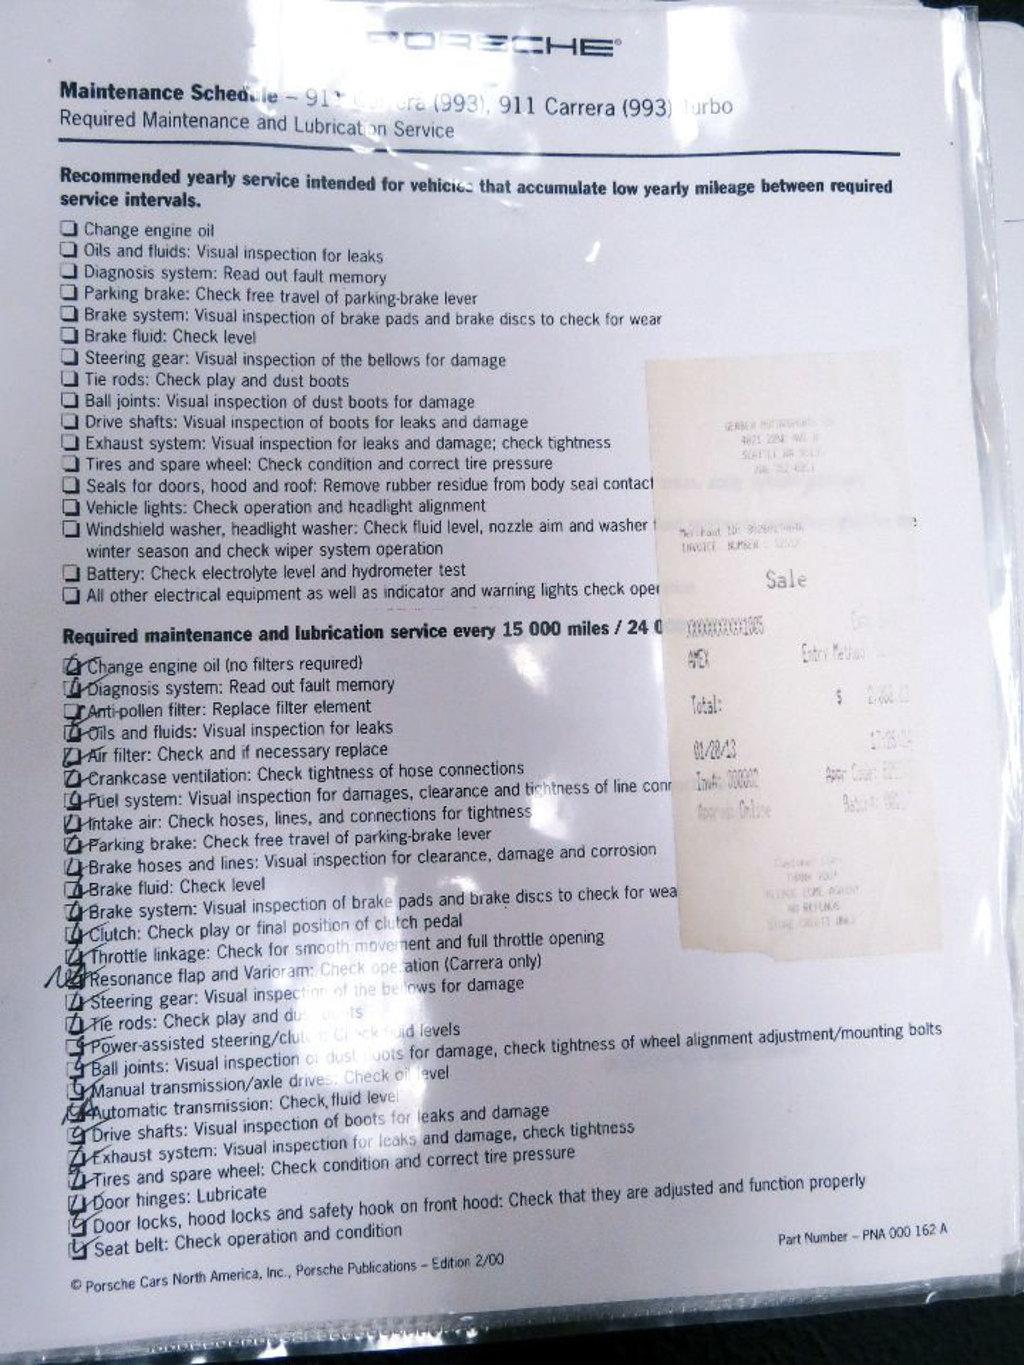 PORSCHE
Maintenance Schedule – 911 Carrera (993), 911 Carrera (993) Turbo
Required Maintenance and Lubrication Service
Recommended yearly service intended for vehicles that accumulate low yearly mileage between required
service intervals.
Change engine oil
Oils and fluids: Visual inspection for leaks
Diagnosis system: Read out fault memory
Parking brake: Check free travel of parking-brake lever
Brake system: Visual inspection of brake pads and brake discs to check for wear
Brake fluid: Check level
Steering gear: Visual inspection of the bellows for damage
Tie rods: Check play and dust boots
Ball joints: Visual inspection of dust boots for damage
Drive shafts: Visual inspection of boots for leaks and damage
Exhaust system: Visual inspection for leaks and damage; check tightness
Tires and spare wheel: Check condition and correct tire pressure
Seals for doors, hood and roof: Remove rubber residue from body seal contact
Vehicle lights: Check operation and headlight alignment
Windshield washer, headlight washer: Check fluid level, nozzle aim and washer
winter season and check wiper system operation
Battery: Check electrolyte level and hydrometer test
All other electrical equipment as well as indicator and warning lights check
Required maintenance and lubrication service every 15 000 miles / 24
Change engine oil (no filters required)
Diagnosis system: Read out fault memory
Anti-pollen filter: Replace filter element
Oils and fluids: Visual inspection for leaks
Air filter: Check and if necessary replace
Crankcase ventilation: Check tightness of hose connections
Fuel system: Visual inspection for damages, clearance and tightness of line
Intake air: Check hoses, lines, and connections for tightness
Parking brake: Check free travel of parking-brake lever
Brake hoses and lines: Visual inspection for clearance, damage and corrosion
Brake fluid: Check level
Brake system: Visual inspection of brake pads and brake discs to check for
Clutch: Check play or final position of clutch pedal
Throttle linkage: Check for smooth movement and full throttle opening
Resonance flap and Varioram: Check operation (Carrera only)
Steering gear: Visual inspection of the bellows for damage
Tie rods: Check play and dust boots
Power-assisted steering/clutch: Check fluid levels
Ball joints: Visual inspection of dust boots for damage, check tightness of wheel alignment adjustment/mounting bolts
Manual transmission/axle drives: Check oil level
Automatic transmission: Check fluid level
Drive shafts: Visual inspection of boots for leaks and damage
Exhaust system: Visual inspection for leaks and damage, check tightness
Tires and spare wheel: Check condition and correct tire pressure
Door hinges: Lubricate
Door locks, hood locks and safety hook on front hood: Check that they are adjusted and function properly
Seat belt: Check operation and condition
Part Number – PNA 000 162 A
© Porsche Cars North America, Inc., Porsche Publications – Edition 2/00
INVOICE NUMBER
Sale
XXXXXXXXXXX1005
AMEX
Entry
Total: $
01/28/13
Online
THANK YOU!
PLEASE COME AGAIN!
NO REFUNDS